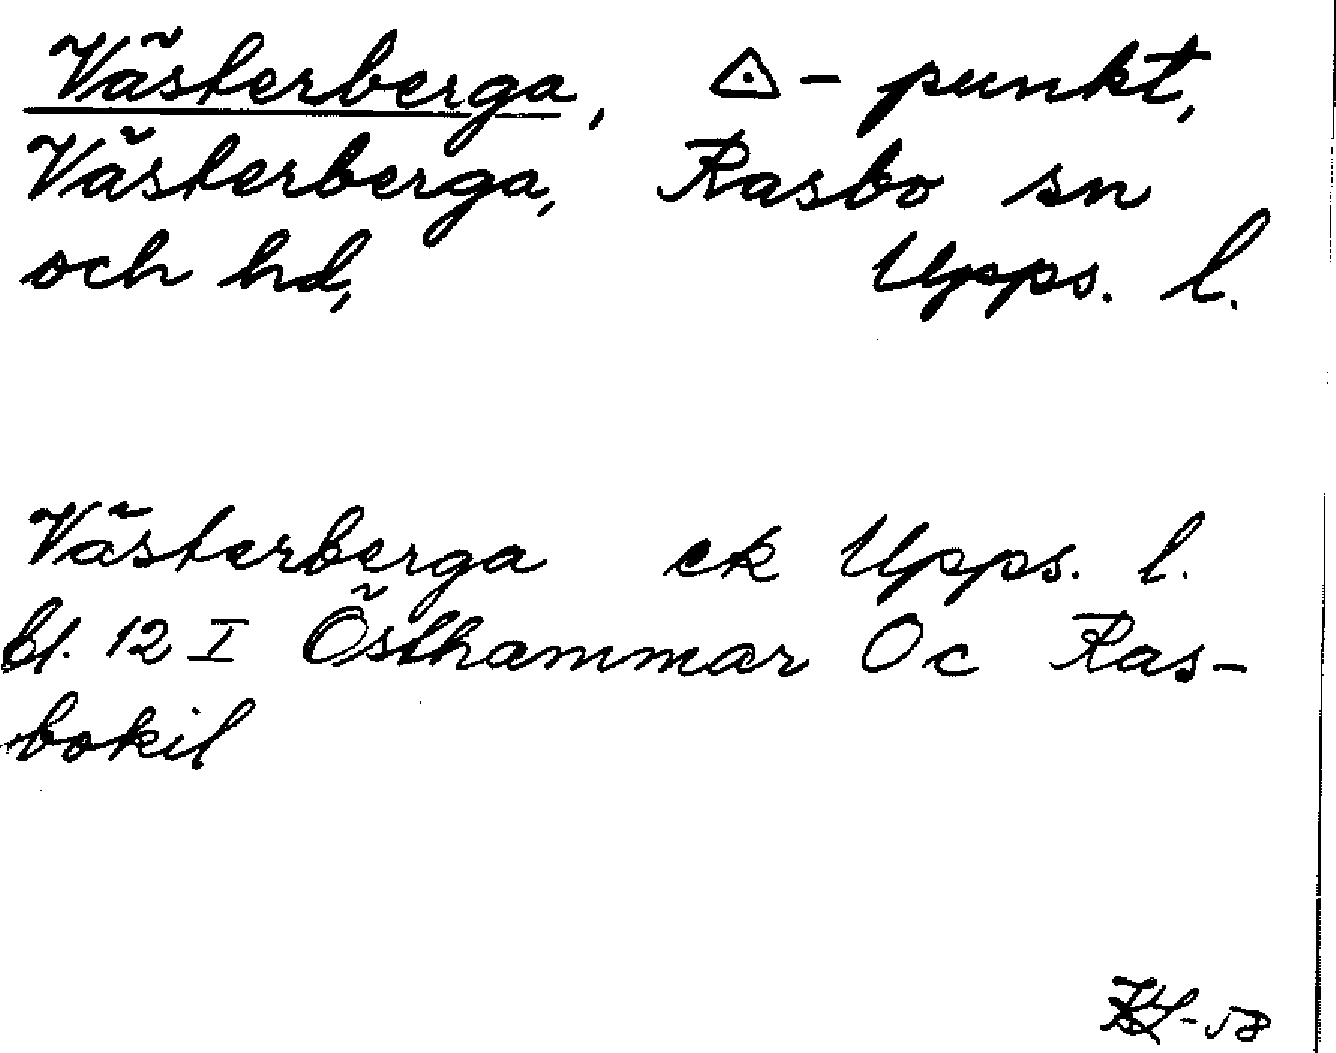 Västerberga, △ - punkt,
Västerberga, Rasbo sn
och hd, Upps. l.
Västerberga ek Upps. l.
bl. 12 I Östhammar Oc Ras-
bokil
-58